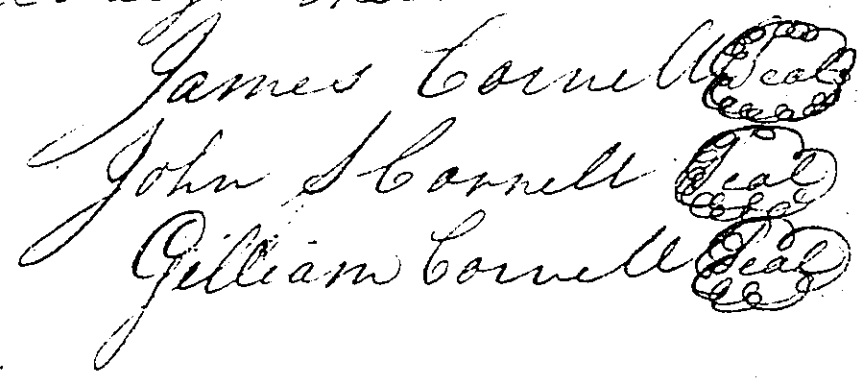 James Cornell Seal
John S Cornell Seal
Gilliam Cornell Seal